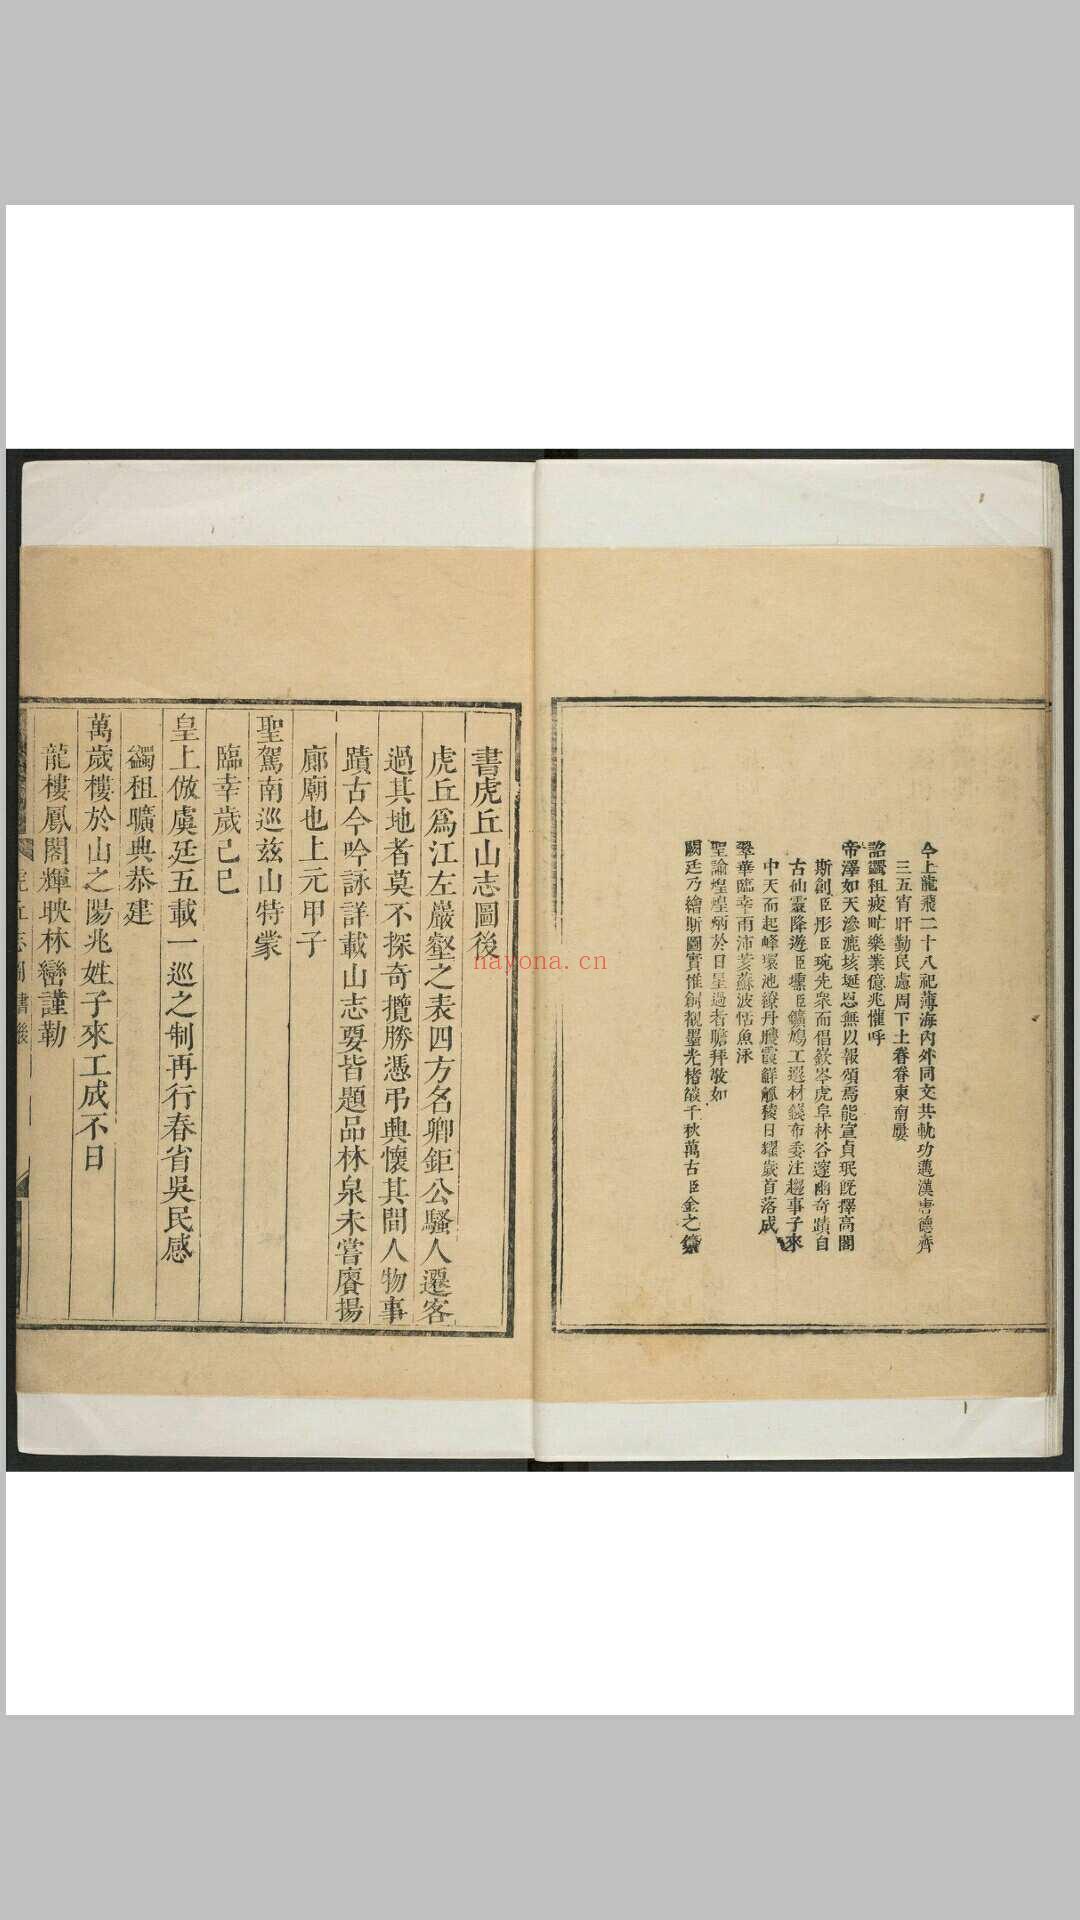 今上龍飛二十八祀薄海內外同文共軌功邁漢唐德齊
三五宵旰勤民慮周下土眷眷東南屢
詔蠲租疲甿樂業億兆懽呼
帝澤如天滲漉垓埏恩無以報頌焉能宣貞珉旣擇高閣
斯創臣彤臣琬先衆而倡嶔岑虎阜林谷邃幽奇蹟自
古仙靈降遊臣壎臣鑛鳩工選材錢布委注趨事子來
中天而起峰環池繚丹艧霞鮮觚稜日耀歲首落成
翠華臨幸雨沛荄蘇波恬魚泳
聖諭煌煌炳於日星過者瞻拜敬如
闕廷乃繪斯圖實惟創觀墨光楮燄千秋萬古臣金之
書虎丘山志圖後
虎丘爲江左巖壑之表四方名卿鉅公騷人遷客
過其地者莫不探奇攬勝憑弔興懷其間人物事
蹟古今吟詠詳載山志要皆題品林泉未嘗賡揚
廊廟也上元甲子
聖駕南巡茲山特蒙
臨幸歲己巳
皇上倣虞廷五載一巡之制再行春省吳民感
蠲租曠典恭建
萬歲樓於山之陽兆姓子來工成不日
龍樓鳳閣輝映林巒謹勒
虎丘志圖書後
nayona.cn